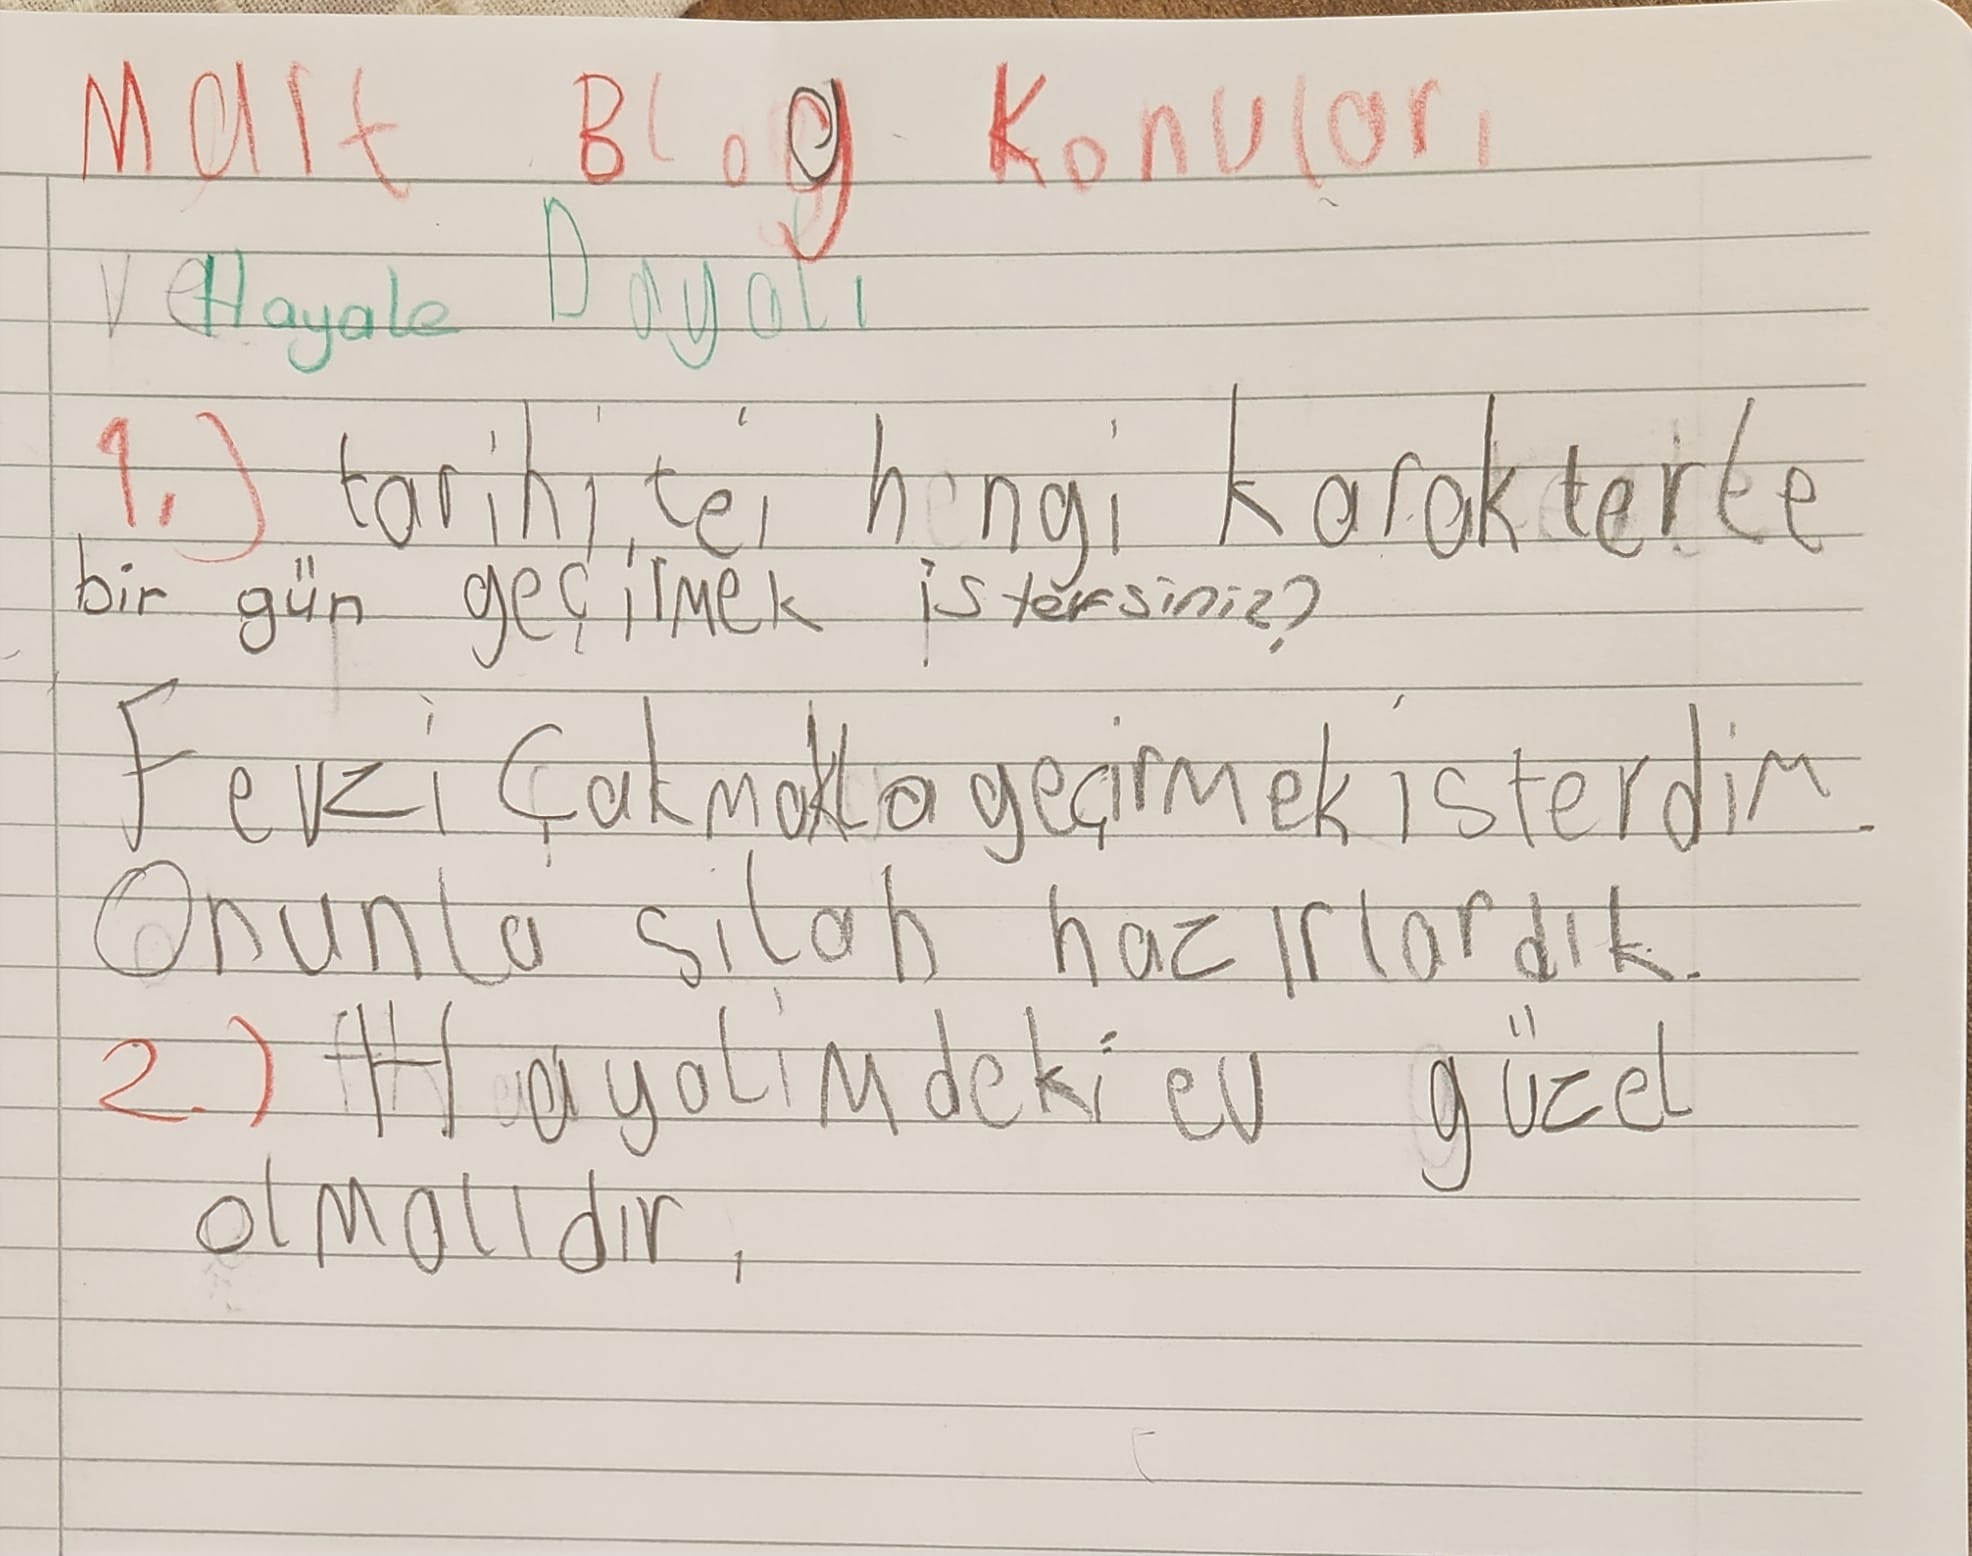 Mart Blog Konuları
ve Hayale Dayalı
1.) tarihi,tei hangi karakterle
bir gün geçirmek istersiniz?
Fevzi Çakmakla geçirmek isterdim.
Onunla silah hazırlardık.
2.) Hayalimdeki ev güzel
olmalıdır,